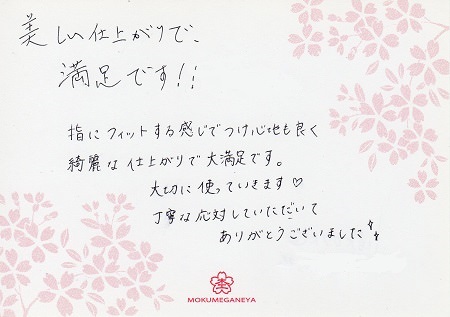 美しい仕上がりで、
満足です!!
指にフィットする感じでつけ心地も良く
綺麗な仕上がりで大満足です。
大切に使っていきます♡
丁寧な応対していただいて
ありがとうございました
MOKUMEGANEYA